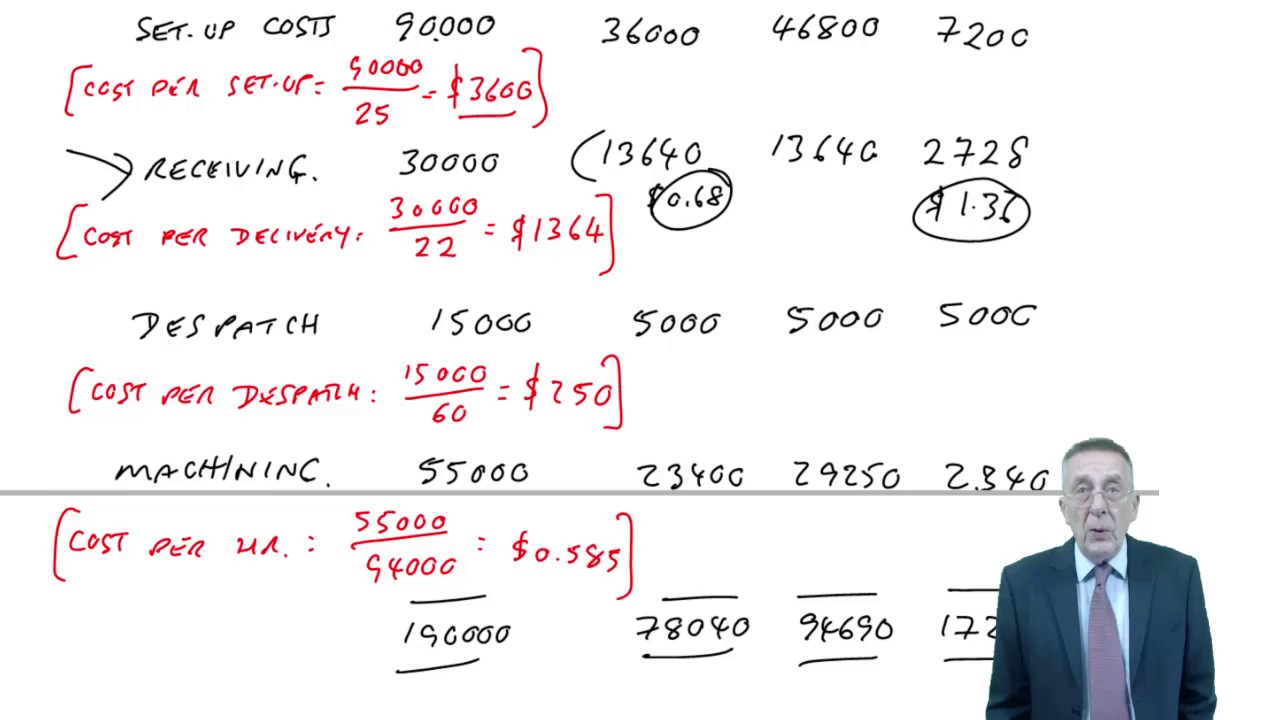 SET-UP COSTS 90000 36000 46800 7200
[COST PER SET-UP = 90000/25 = $3600]
RECEIVING. 30000 (13640 13640 2728
$0.68 $1.36
[COST PER DELIVERY: 30000/22 = $1364]
DESPATCH 15000 5000 5000 5000
[COST PER DESPATCH: 15000/60 = $250]
MACHINING. 55000 23400 29250 2340
[COST PER HR. : 55000/94000 = $0.585]
190000 78040 94690